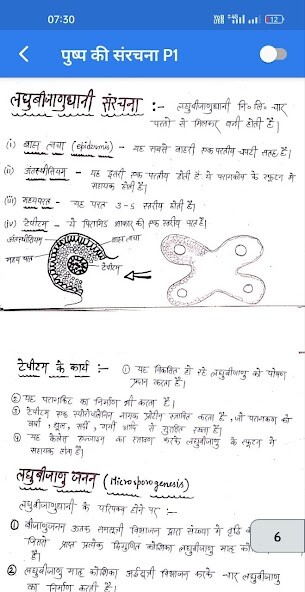 07:30
12
पुष्प की संरचना P1
लघुबीजाणुधानी संरचना :- लघुबीजाणुधानी नि० लि० चार
परतो से मिलकर बनी होती है।
(i) बाह्य त्वचा (epidermis) - यह सबसे बाहरी एक परतीय सतह है।
(ii) अंतःस्थीसियम - यह दूसरी एक परतीय होती है ये परागकोष के स्फुटन में
सहायक होती है।
(iii) मध्यपरत - यह परत 3-5 स्तरीय होती है।
(iv) टेपीटम - ये पिरामिड आकार की एक स्तरीय परत है।
अंतःस्थीसियम
बाह्य त्वचा
मध्य परत
टेपीटम
टेपीटम के कार्य :- ① यह विकसित हो रहे लघुबीजाणु को पोषण
प्रदान करता है।
② यह परागकिट का निर्माण भी करता है।
③ टेपीटम एक स्पोरोपोलेनिन नामक प्रोटीन स्त्रावित करता है, जो परागकण को
वर्षा, धूल, सर्दी, गर्मी आदि से सुरक्षित रखता है।
④ यह कैलेज एन्जाइम का स्त्रावण करके लघुबीजाणु के स्फुटन में
सहायक होता है।
लघुबीजाणु जनन (Microsporogenesis)
लघुबीजाणुधानी के परिपक्व होने पर :-
① बीजाणुजनन ऊतक समसूत्री विभाजन द्वारा संख्या में वृद्धि
जिससे प्राप्त प्रत्येक द्विगुणित कोशिका लघुबीजाणु मातृ को
है।
② लघुबीजाणु मातृ कोशिका अर्द्धसूत्री विभाजन करके चार लघुबीजाणु
का निर्माण करती है।
6